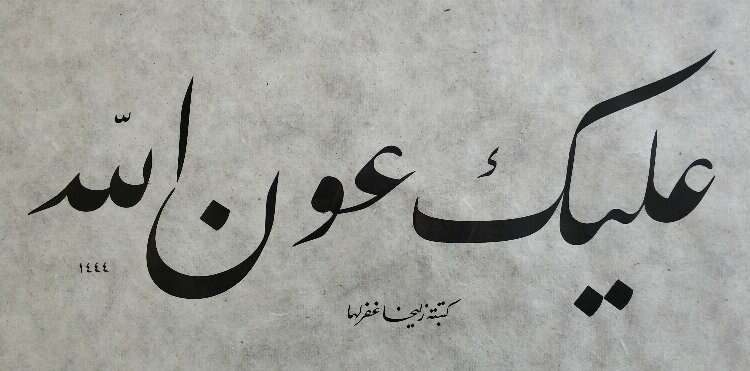 عليك عون الله
١٤٤٤
كتبته زليخا غفر لها